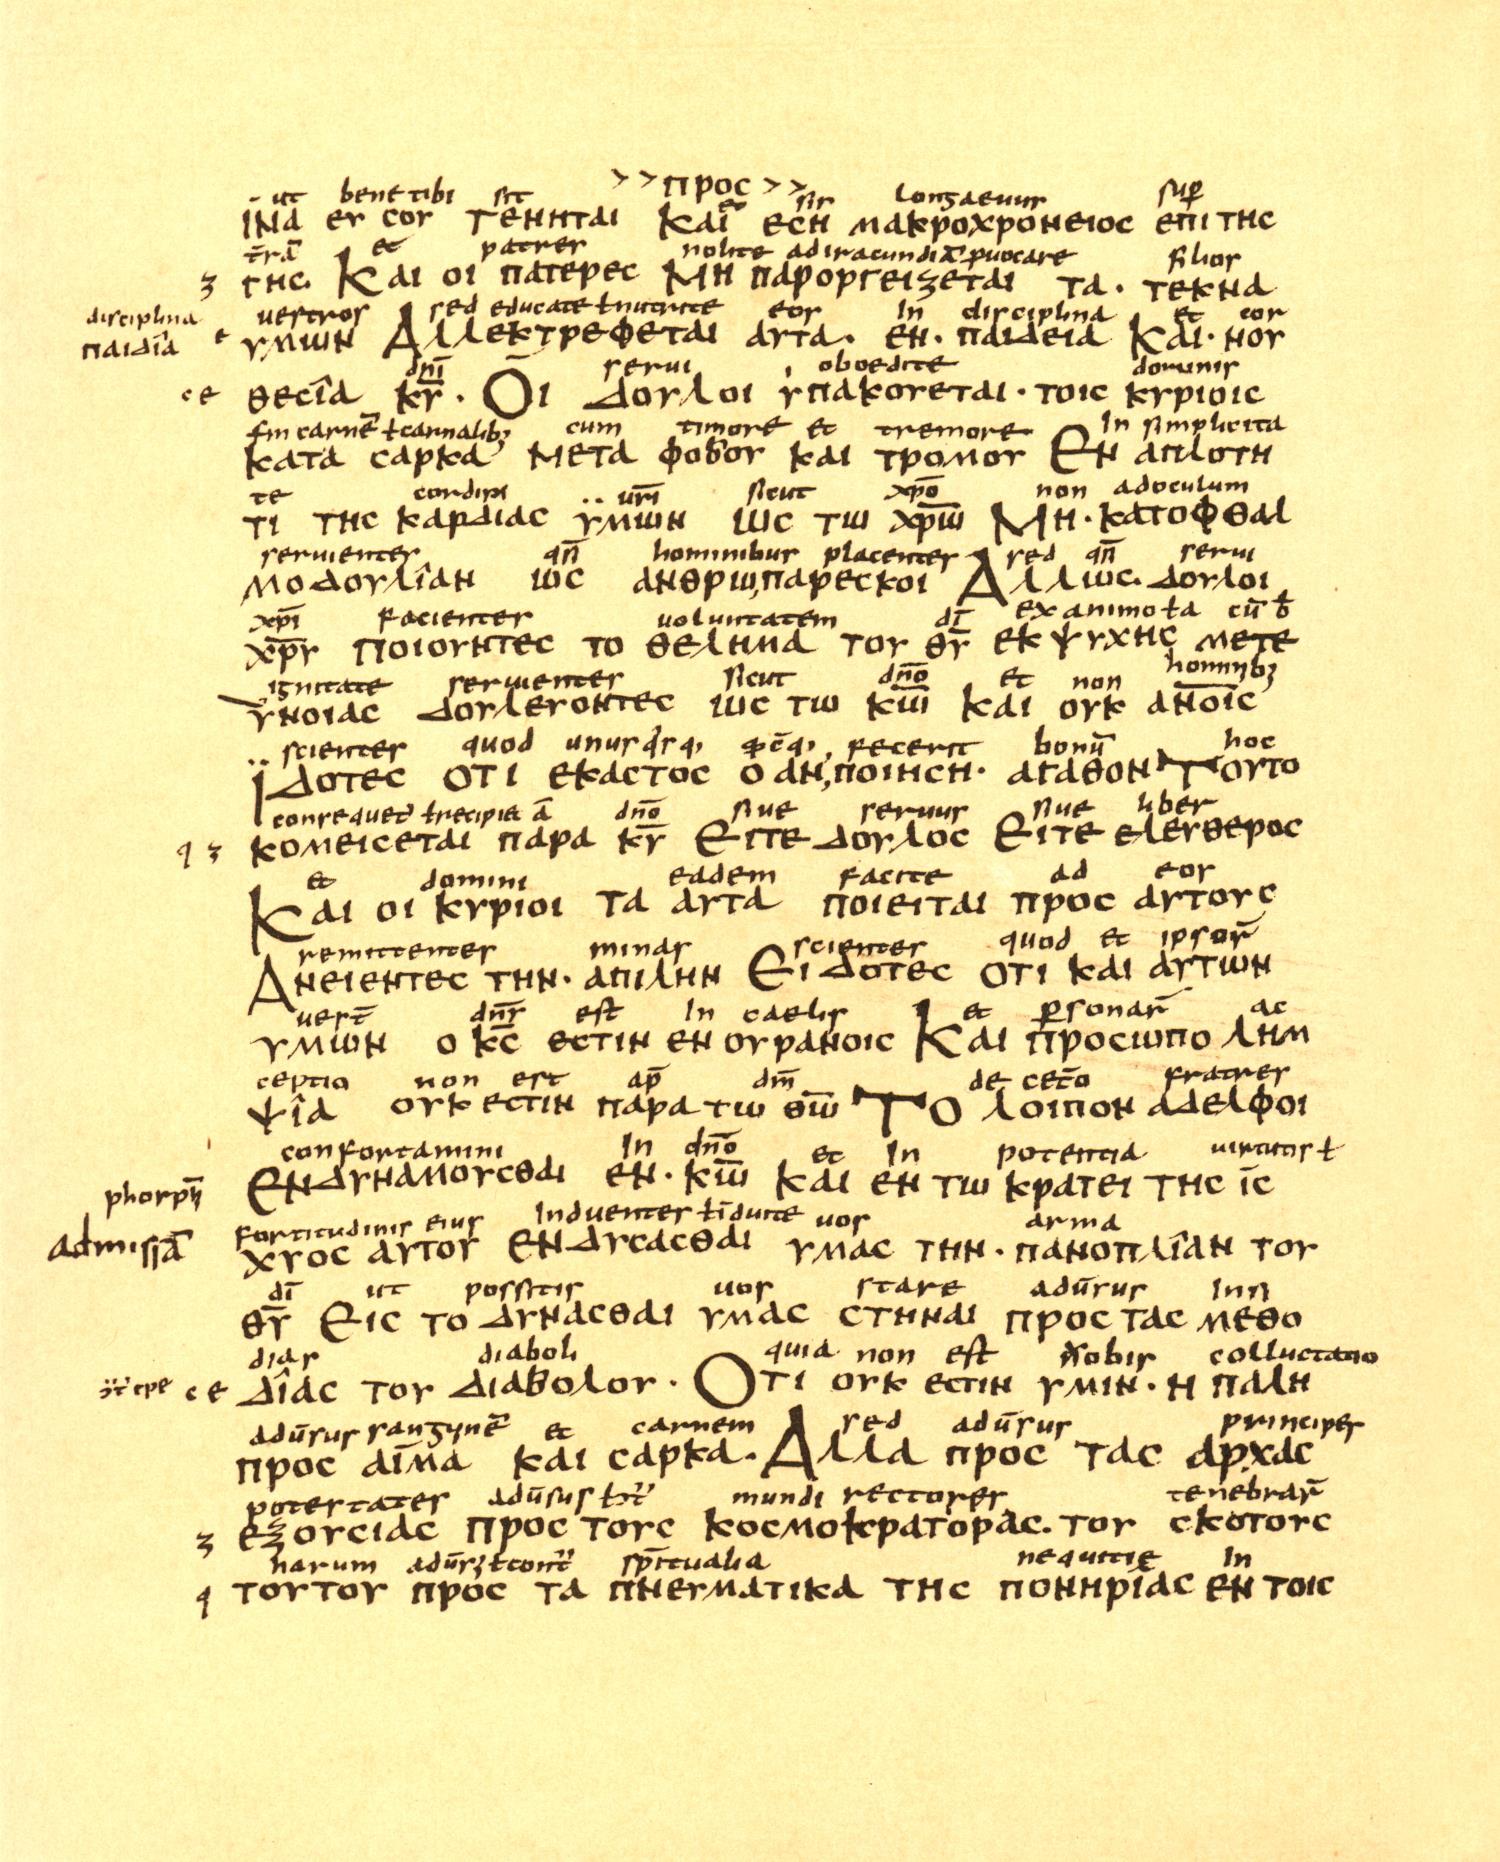 >> προς >>
ut bene tibi sit et sis longaeuus sup̄
ϊνα ευ σοι γενηται Και εση μακροχρονειος επι της
t̄rā et patres nolite ad iracundiā ꝓuocare filios
γης. Και οι πατερες Μη παροργειζεται τα· τεκνα
disciplina uestros sed educate ł nutrite eos in disciplina et cor
παιδîα υμων Αλλεκτρεφεται αυτα· εν· παιδεια Και· νου
dn̄i serui oboedite dominis
θεσîα κ̄ῡ· Οι δουλοι ϋπακουεται· τοις κυριοις
carnē ł carnalibꝫ cum timore et tremore In simplicita
κατα σαρκα Μετα φοβου και τρομου Εν απλοτη
te cordis ur̄i sicut xp̄o non ad oculum
τι της καρδιας ϋμων ως τω χ̄ρ̄ω̄ Μη· κατοφθαλ
seruientes qn̄ hominibus placentes sed qn̄ serui
μοδουλîαν ως ανθρω,παρεσκοι Αλλως· δουλοι
xp̄i facientes uoluntatem dī ex animo ł a cū b̄
χ̄ρ̄ῡ Ποιουντες το θελημα του θ̄ῡ εκ ψυχης μετε
ignitate seruientes sicut dn̄o et non hominibꝫ
υνοιας δουλευοντες ως τω κ̄ω̄ και ουκ αν̄οῑς
scientes quod unus fecerit bonū hoc
ϊδοτες οτι εκαστος ο αν,ποιηση· αγαθον Τουτο
ł recipie ā dn̄o siue seruus siue liber
κομεισεται παρα κ̄ῡ Ειτε δουλος Ειτε ελευθερος
et domini eadem facite ad eos
Και οι κυριοι τα αυτα ποιειται προς αυτους
remittentes minas scientes quod et ipsor̄
Ανειεντες την· απιλην Ειδοτες οτι και αυτων
uest̄ dn̄s est In caelis et ꝑsonar̄ ac
υμων ο κ̄ς̄ εστιν εν ουρανοις Και προσωπο λημ
ceptio non est ap̄ dm̄ de cet̄o fratres
ψîα ουκ εστιν παρα τω θ̄ω̄ Το λοιπον αδελφοι
confortamini In dn̄o et In potentia uirtutis ł
Ενδυναμουσθαι εν· κ̄ω̄ και εν τω κρατει της ῑς
admissā fortitudinis eius Induentes ł īduite uos arma
χυος αυτου ενδυσασθαι υμας την· πανοπλîαν του
dī ut possitis uos stare adūrsus Insi
θ̄ῡ Εις το δυνασθαι υμας στηναι προς τας μεθο
dias diaboli quia non est nobis colluctatio
δîας του διαβολου· Οτι ουκ εστιν υμιν· η παλη
adūrsus sanguinē et carnem sed adūrsus principes
προς αîμα και σαρκα· Αλλα προς τας αρχας
potestates adūsus mundi rectores tenebrar̄
εξουσιας προς τους κοσμοκρατορας· του σκοτους
harum sp̄itualia nequitie In
τουτου προς τα πνευματικα της πονηρîας εν τοις